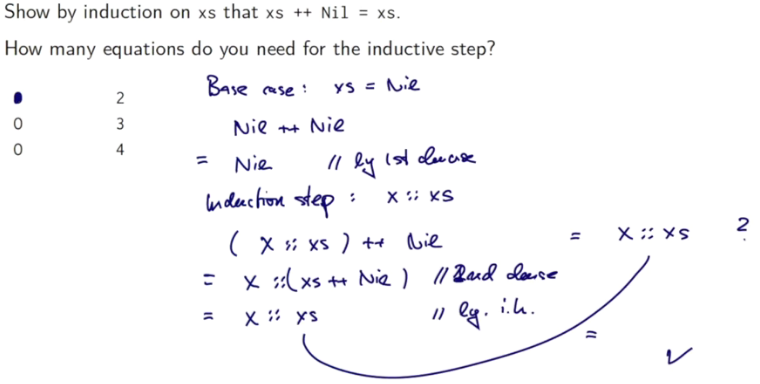 Show by induction on xs that xs ++ Nil = xs.
How many equations do you need for the inductive step?
2
0 3
0 4
Base case: xs = Nil
Nil ++ Nil
= Nil // by 1st clause
Induction step: x :: xs
(x :: xs) ++ Nil = x :: xs ?
= x ::(xs ++ Nil) // 2nd clause
= x :: xs // by. i.h.
= ✓